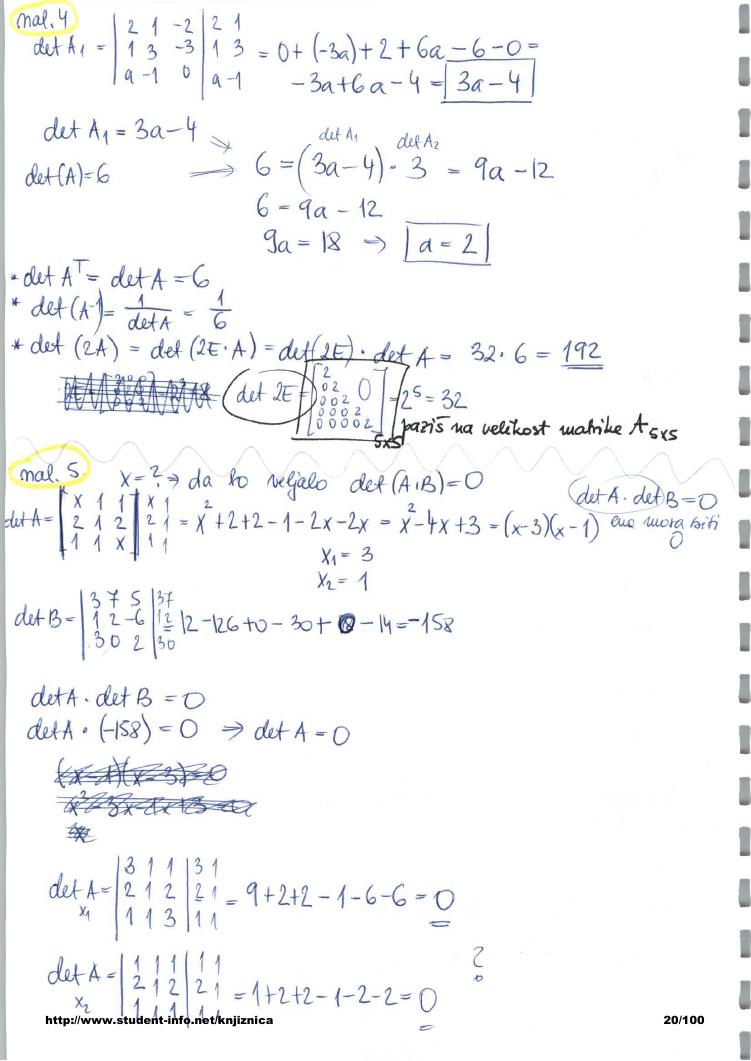 nal. 4
det A₁ = | 2 1 -2 | 2 1
1 3 -3 | 1 3
a -1 0 | a -1 = 0 + (-3a) + 2 + 6a - 6 - 0 =
-3a + 6a - 4 = 3a - 4
det A₁ = 3a - 4
det A₁ det A₂
det(A) = 6 → 6 = (3a - 4) · 3 = 9a - 12
6 = 9a - 12
9a = 18 → a = 2
* det Aᵀ = det A = 6
* det(A⁻¹) = 1/det A = 1/6
* det (2A) = det (2E · A) = det(2E) · det A = 32 · 6 = 192
det 2E = [ 2
0 2 0
0 0 2
0 0 0 2
0 0 0 0 2 ] 5x5 = 2⁵ = 32
paziš na velikost matrike A 5x5
nal. 5
x = ? → da bo veljalo det(A·B) = 0
det A · det B = 0
ena mora biti 0
det A = | x 1 1 | x 1
2 1 2 | 2 1
1 1 x | 1 1 = x² + 2 + 2 - 1 - 2x - 2x = x² - 4x + 3 = (x-3)(x-1)
x₁ = 3
x₂ = 1
det B = | 3 7 5 | 3 7
1 2 -6 | 1 2
3 0 2 | 3 0 12 - 126 + 0 - 30 + 0 - 14 = -158
det A · det B = 0
det A · (-158) = 0 ⇒ det A = 0
det A x₁ = | 3 1 1 | 3 1
2 1 2 | 2 1
1 1 3 | 1 1 = 9 + 2 + 2 - 1 - 6 - 6 = 0
?
det A x₂ = | 1 1 1 | 1 1
2 1 2 | 2 1
1 1 1 | 1 1 = 1 + 2 + 2 - 1 - 2 - 2 = 0
http://www.student-info.net/knjiznica 20/100